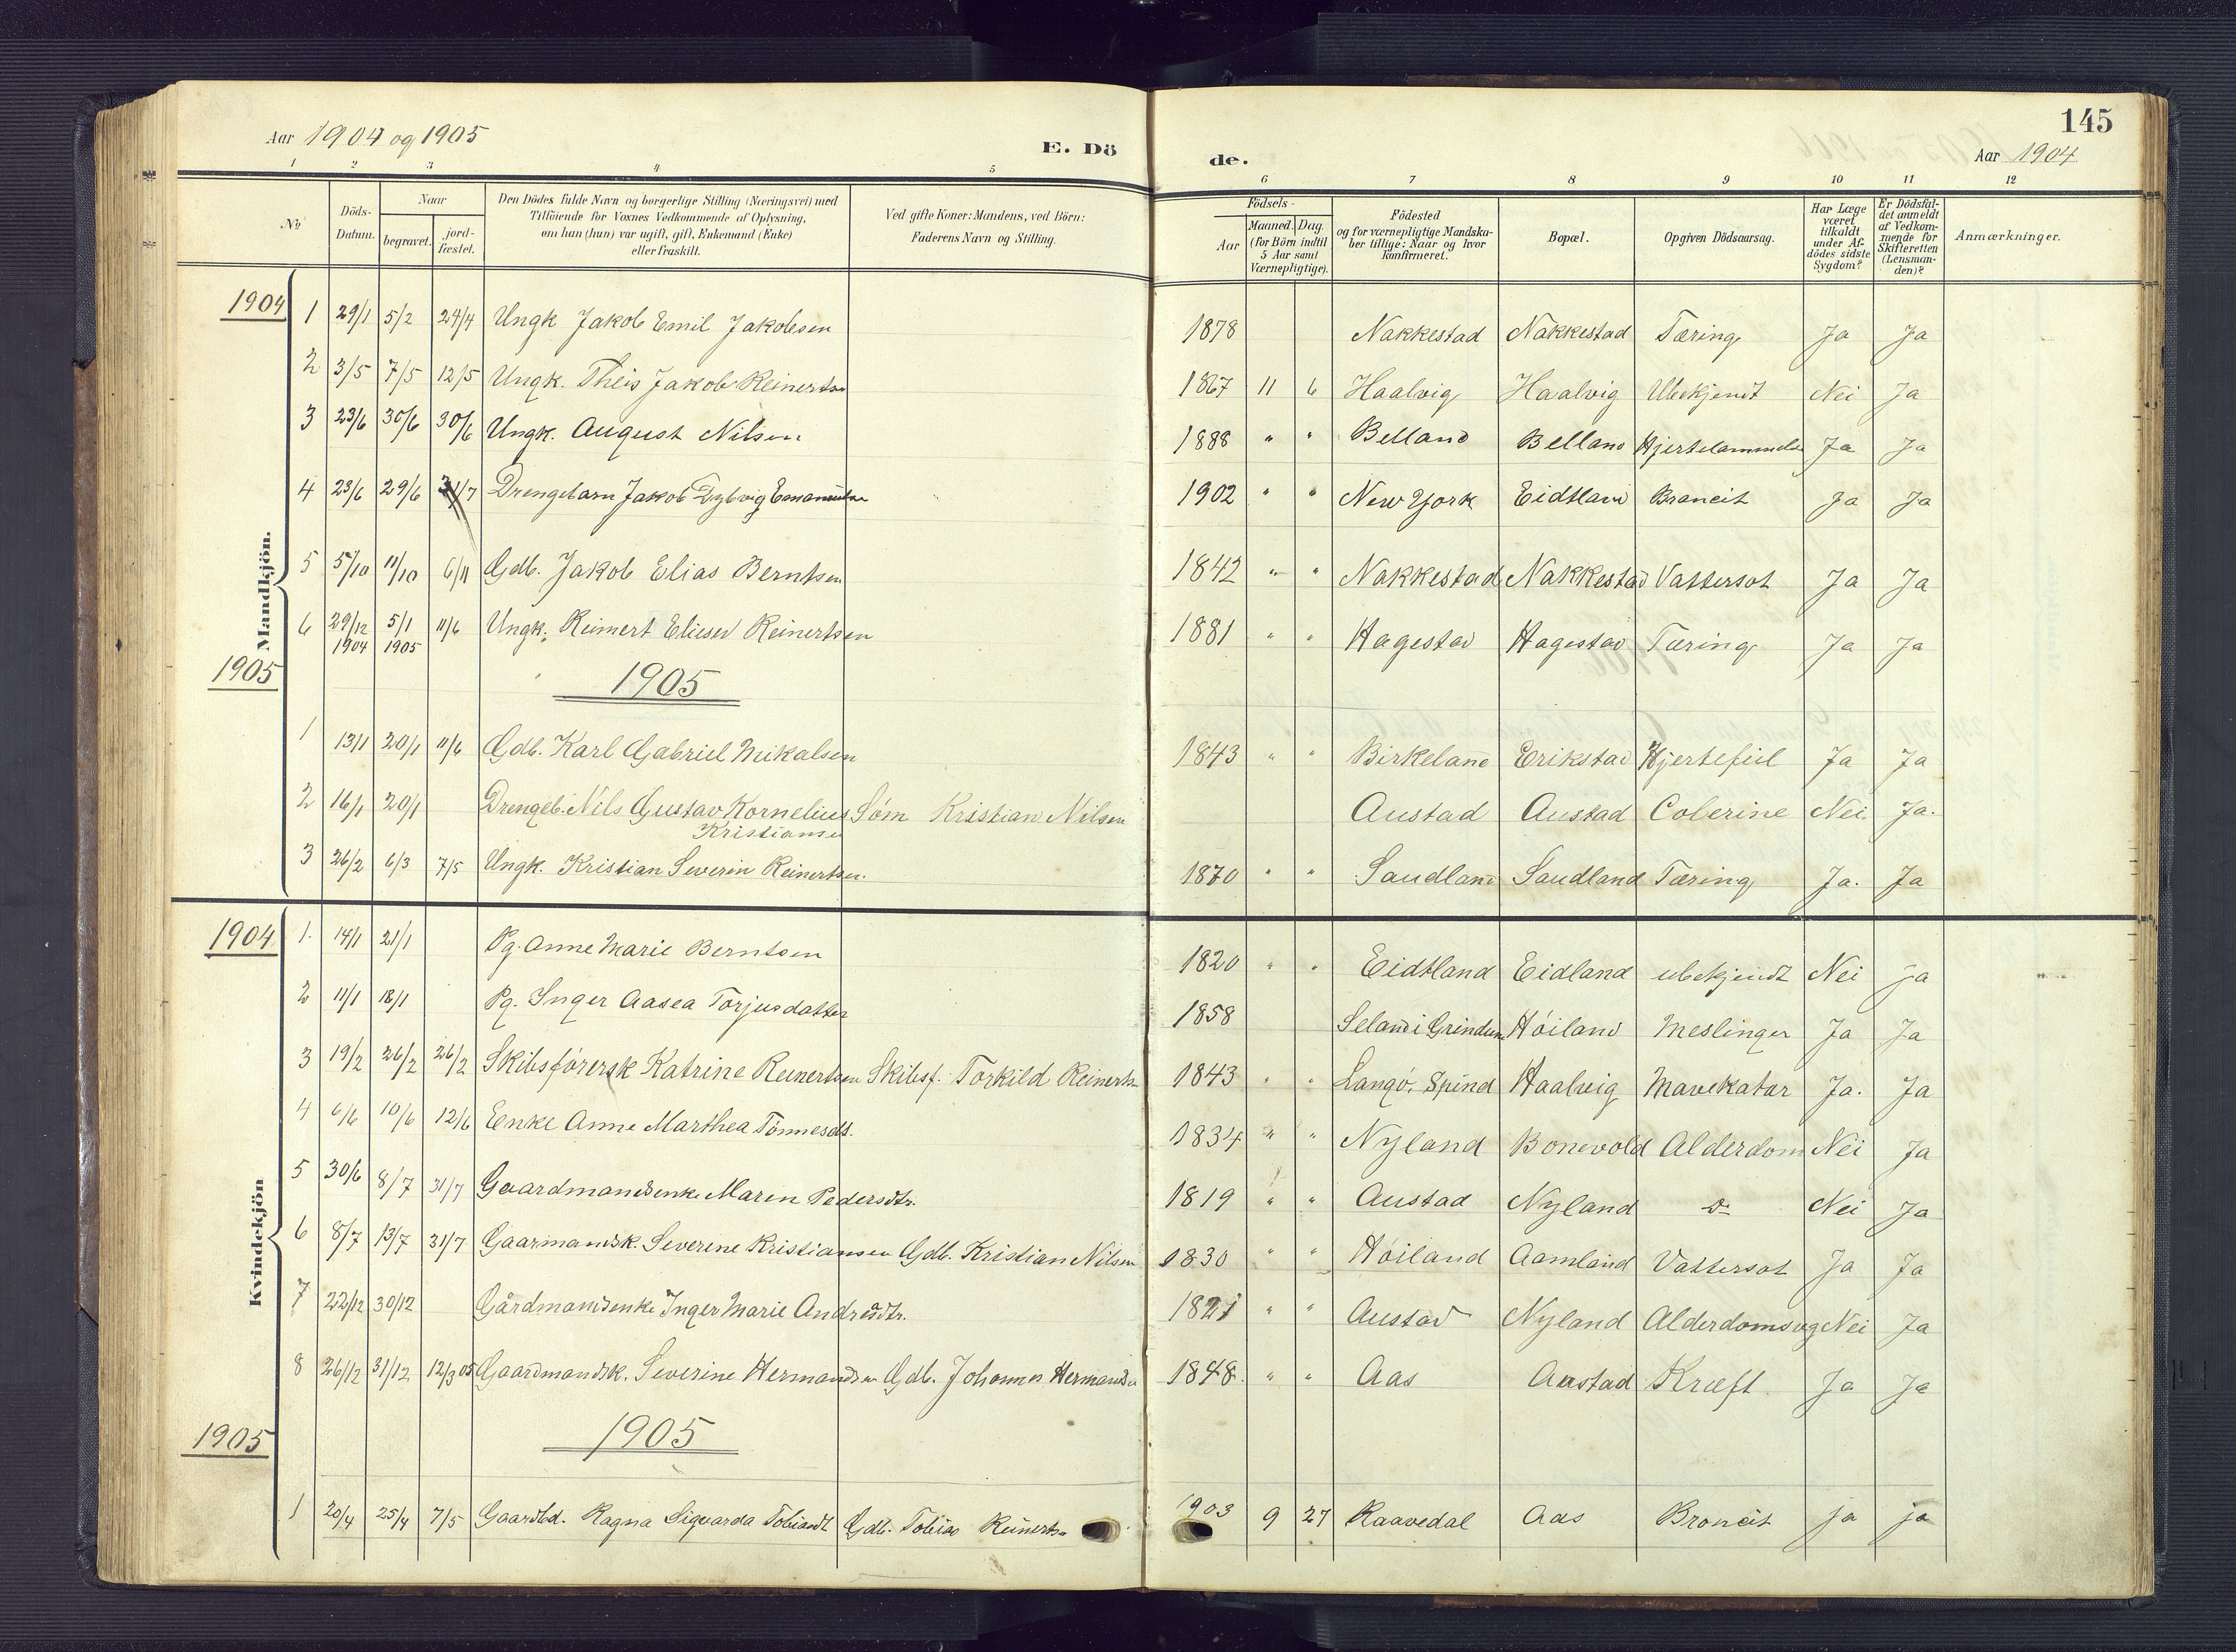 Aar 1904 og 1905
E. Dö
de.
145
Aar 1904
1 2 3 4 5 6 7 8 9 10 11 12
No
Döds-Datum.
Naar
begravet.
jord-fæstet.
Den Dödes fulde Navn og borgerlige Stilling (Næringsvei) med
Tilföiende for Voxnes Vedkommende af Oplysning,
om han (hun) var ugift, gift, Enkemand (Enke)
eller fraskilt.
Ved gifte Koner: Mandens, ved Börn:
Faderens Navn og Stilling.
Födsels-
Aar
Maaned. Dag.
(for Börn indtil
5 Aar samt
Værnepligtige).
Födested
og for værnepligtige Mandska-
ber tillige: Naar og hvor
konfirmeret.
Bopæl.
Opgiven Dödsaarsag.
Har Læge
været
tilkaldt
under Af-
dödes sidste
Sygdom?
Er Dödsfal-
det anmeldt
af Vedkom-
mende for
Skifteretten
(Lensman-
den)?
Anmærkninger.
Mandkjön.
1904
1 29/1 5/2 24/4 Ungk Jakob Emil Jakobsen 1878 Nakkestad Nakkestad Tæring Ja Ja
2 3/5 7/5 12/5 Ungk. Theis Jakob Reinertsen 1867 11 6 Haalvig Haalvig Ubekjendt Nei Ja
3 23/6 30/6 30/6 Ungk. August Nilsen 1888 " " Belland Belland Hjertelammelse Ja Ja
4 23/6 29/6 31/7 Drengebarn Jakob Dybvig 1902 " " New York Eidtland Broncit Ja Ja
5 5/10 11/10 6/11 Gdb. Jakob Elias Berntsen 1842 " " Nakkestad Nakkestad Vattersot Ja Ja
6 29/12 1904 5/1 1905 11/6 Ungk. Reimert Elieser Reinertsen 1881 " " Hagestad Hagestad Tæring Ja Ja
1905
1905
1 13/1 20/1 11/6 Gdb. Karl Gabriel Mikalsen 1843 " " Birkeland Erikstad Hjertefeil Ja Ja
2 16/1 20/1 Drengeb. Nils Gustav Kornelius Kristiansen Søm Kristian Nilsen Austad Austad Colerine Nei. Ja.
3 26/2 6/3 7/5 Ungk. Kristian Severin Reinertsen. 1870 " " Saudland Saudland Tæring Ja. Ja
Kvindekjön
1904
1. 14/1 21/1 Pg. Anne Marie Berntsen 1820 " " Eidtland Eidland ubekjendt Nei ja
2 11/1 18/1 Pg. Inger Aasea Torjusdatter 1858 Seland i Grindum Høiland Meslinger Ja Ja
3 19/2 26/2 26/2 Skibsførersk Katrine Reinertsen Skibsf. Torkild Reinertsn 1843 " " Langø, Spind Haalvig Mavekatar Ja. Ja
4 6/6 10/6 12/6 Enke Anne Marthea Tönnesdt. 1834 " " Nyland Bonevold Alderdom Nei Ja
5 30/6 8/7 31/7 Gaardmandsenke Maren Pedersdtr. 1819 " " Austad Nyland do Nei Ja
6 8/7 13/7 31/7 Gaarmandsk. Severine Kristiansen Gdb. Kristian Nilsen 1830 " " Høiland Aamland Vattersot Ja Ja
7 22/12 30/12 Gårdmandsenke Inger Marie Andresdtr. 1821 " " Austad Nyland Alderdomsvg Nei Ja
8 26/12 31/12 12/3 05 Gaardmandsk. Severine Hermandsen Gdb. Johannes Hermandsn 1848. " " Aas Austad Kræft Ja Ja
1905
1905
1 20/4 25/4 7/5 Gaardbd. Ragna Sigvarda Tobiasdt Gdb. Tobias Reinertsn 1903 9 27 Raavedal Aas Broncit ja ja